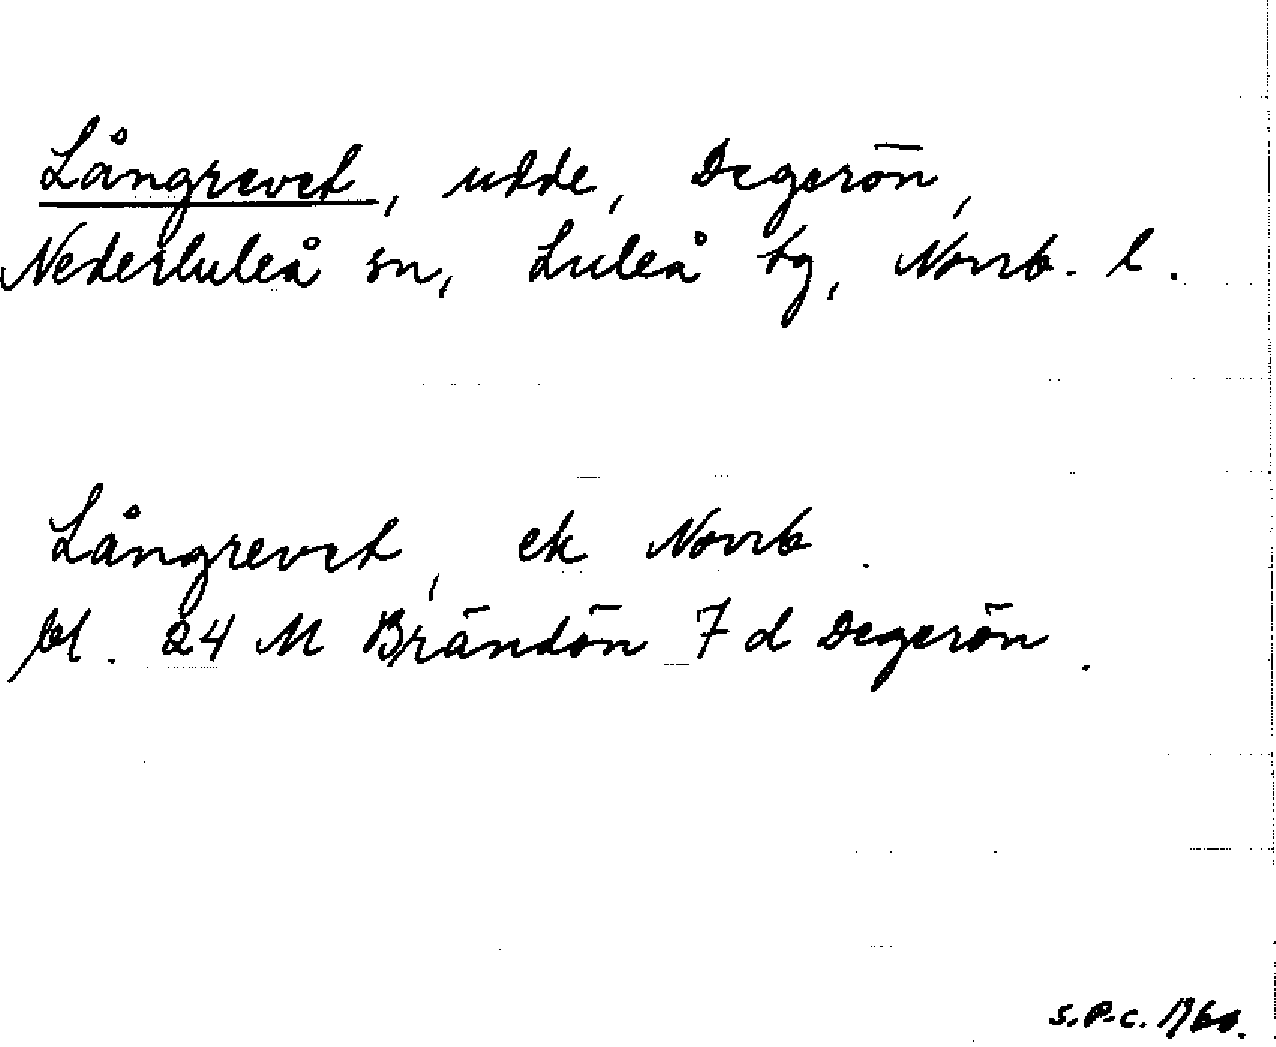 Långrevet, udde, Degerön,
Nederluleå sn, Luleå tg, Norrb. l.
Långrevet, ek Norrb.
bl. 24 M Brändön 7 d Degerön.
S.P.C. 1960.